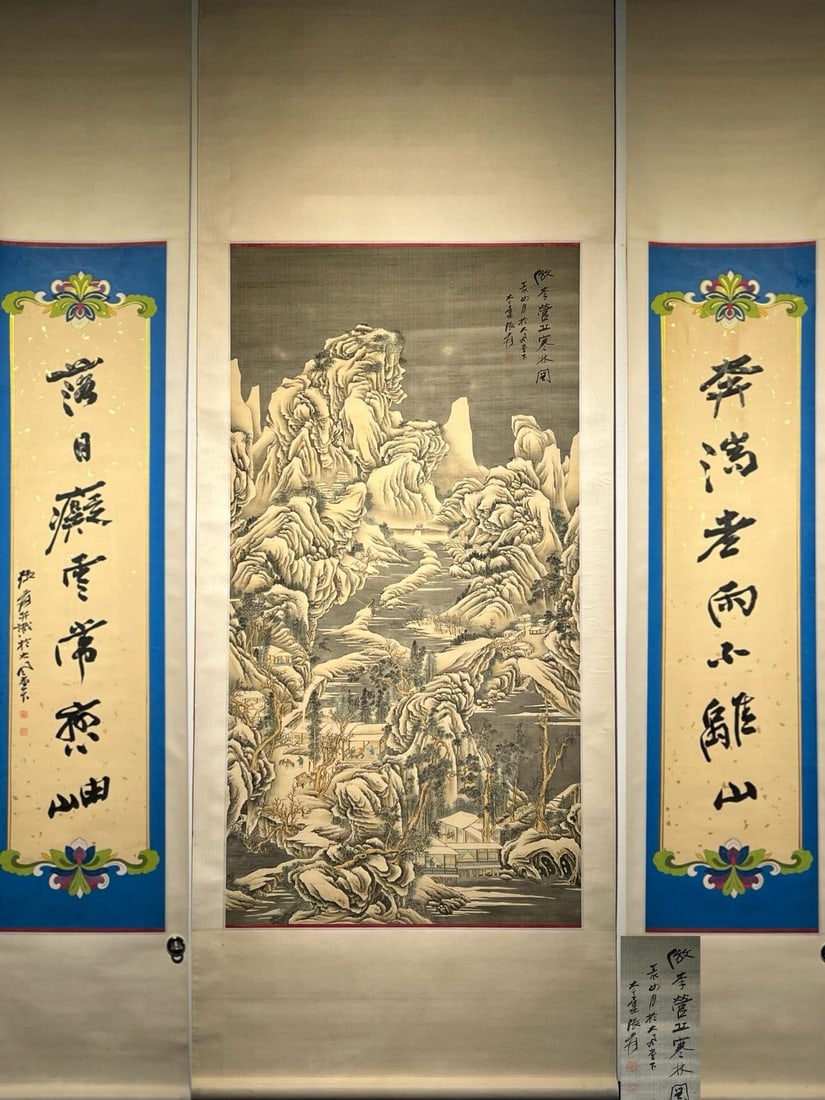 奔湍老雨不離山
落日癡雲常戀岫
張爰并識於大風堂下
倣李營丘寒林圖
於大風堂下
大千張爰
倣李營丘寒林圖
於大風堂下
大千張爰